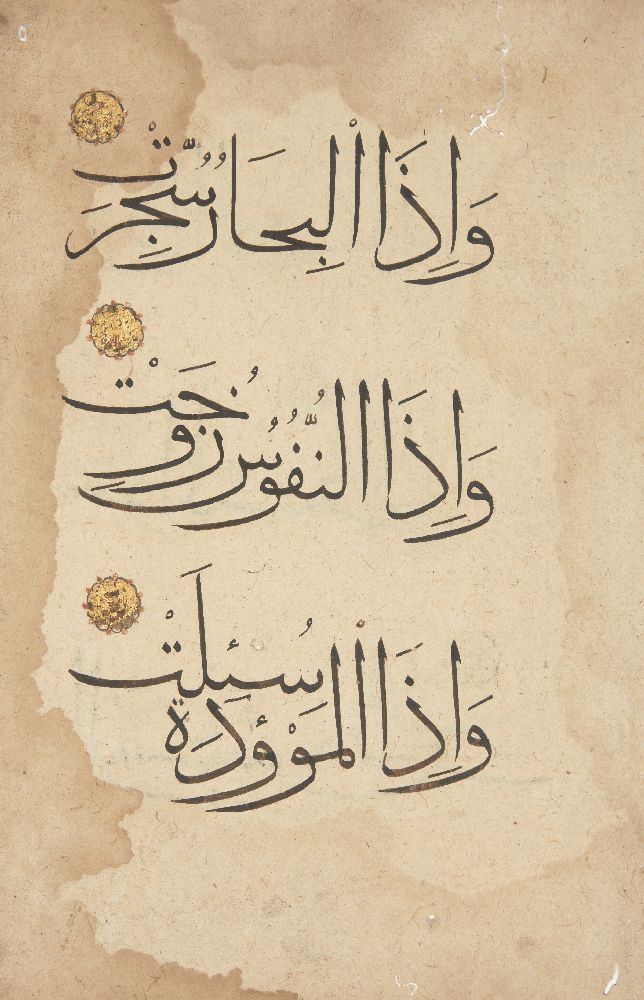 وَاِذَا الْبِحَارُ سُجِّرَتْ
وَاِذَا النُّفُوسُ زُوِّجَتْ
وَاِذَا الْمَوْؤُدَةُ سُئِلَتْ